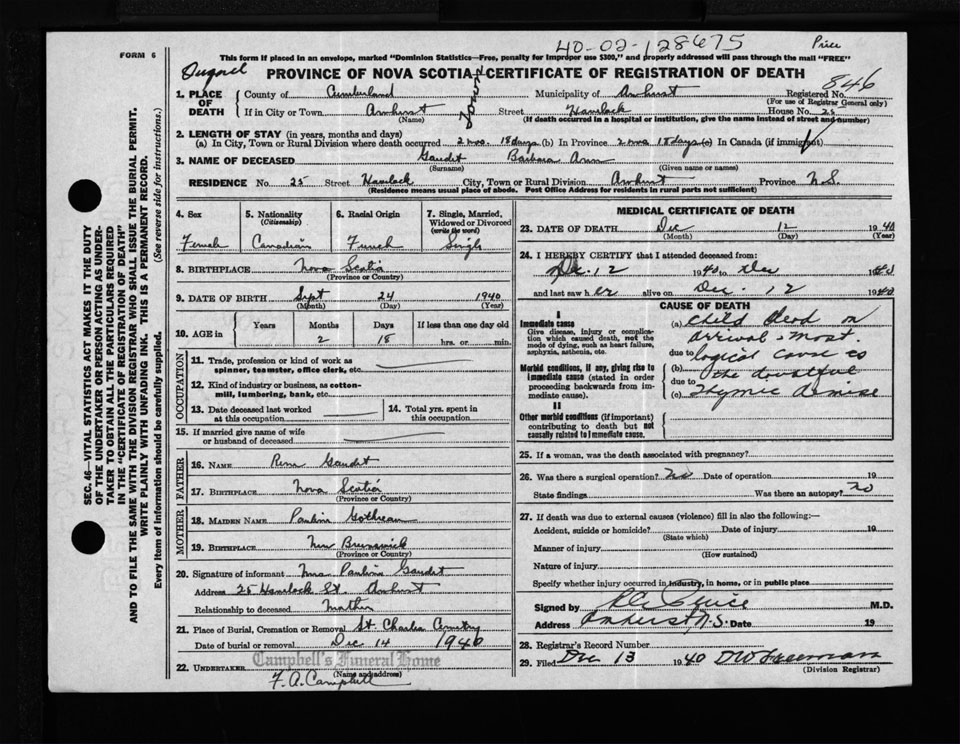 40-02-128675
Price
FORM 6
This form if placed in an envelope, marked "Dominion Statistics—Free, penalty for improper use $300," and properly addressed will pass through the mail "FREE"
PROVINCE OF NOVA SCOTIA—CERTIFICATE OF REGISTRATION OF DEATH
846
1. PLACE OF DEATH
County of Cumberland Municipality of Amherst Registered No.
(For use of Registrar General only)
If in City or Town Amherst Street Havelock House No. 25
(Name) (If death occurred in a hospital or institution, give the name instead of street and number)
Town
2. LENGTH OF STAY (in years, months and days)
(a) In City, Town or Rural Division where death occurred 2 mos. 18 days (b) In Province 2 mos 18 days (c) In Canada (if immigrant)
3. NAME OF DECEASED Gaudet Barbara Ann
(Surname) (Given name or names)
RESIDENCE No. 25 Street Havelock City, Town or Rural Division Amherst Province N.S.
(Residence means usual place of abode. Post Office Address for residents in rural parts not sufficient)
4. Sex
Female
5. Nationality
(Citizenship)
Canadian
6. Racial Origin
French
7. Single, Married, Widowed or Divorced
(write the word)
Single
8. BIRTHPLACE Nova Scotia
(Province or Country)
9. DATE OF BIRTH Sept 24 1940
(Month) (Day) (Year)
10. AGE in
Years Months Days If less than one day old
2 18 hrs. or min.
OCCUPATION
11. Trade, profession or kind of work as
spinner, teamster, office clerk, etc.
12. Kind of industry or business, as cotton-
mill, lumbering, bank, etc.
13. Date deceased last worked
at this occupation
14. Total yrs. spent in
this occupation
15. If married give name of wife
or husband of deceased
FATHER
16. NAME Gaudet
17. BIRTHPLACE Nova Scotia
(Province or Country)
MOTHER
18. MAIDEN NAME Pauline
19. BIRTHPLACE New Brunswick
(Province or Country)
20. Signature of informant Mrs Pauline Gaudet
Address 25 Havelock St. Amherst
Relationship to deceased Mother
21. Place of Burial, Cremation or Removal St. Charles Cemetery
Date of burial or removal Dec 14 1940
22. UNDERTAKER Campbell's Funeral Home
(Name and address)
F. A. Campbell
MEDICAL CERTIFICATE OF DEATH
23. DATE OF DEATH Dec 12 1940
(Month) (Day) (Year)
24. I HEREBY CERTIFY that I attended deceased from:
Dec. 12 1940 to Dec 1940
and last saw her alive on Dec. 12 1940
CAUSE OF DEATH
I
Immediate cause
Give disease, injury or complica-
tion which caused death, not the
mode of dying, such as heart failure,
asphyxia, asthenia, etc.
Morbid conditions, if any, giving rise to
immediate cause (stated in order
proceeding backwards from im-
mediate cause).
II
Other morbid conditions (if important)
contributing to death but not
causally related to immediate cause.
(a) Child dead on
arrival. Most
due to logical cause is
(b) the doubtful
due to
(c) Thymic
25. If a woman, was the death associated with pregnancy?
26. Was there a surgical operation? No Date of operation 19
State findings Was there an autopsy? No
27. If death was due to external causes (violence) fill in also the following:—
Accident, suicide or homicide? Date of injury 19
(State which)
Manner of injury
(How sustained)
Nature of injury
Specify whether injury occurred in industry, in home, or in public place
Signed by Price M.D.
Address Amherst N.S. Date 19
28. Registrar's Record Number
29. Filed Dec 13 1940 DW Freeman
(Division Registrar)
SEC. 46—VITAL STATISTICS ACT MAKES IT THE DUTY
OF THE UNDERTAKER OR PERSON ACTING AS UNDER-
TAKER TO OBTAIN ALL THE PARTICULARS REQUIRED
IN THE "CERTIFICATE OF REGISTRATION OF DEATH"
AND TO FILE THE SAME WITH THE DIVISION REGISTRAR WHO SHALL ISSUE THE BURIAL PERMIT.
WRITE PLAINLY WITH UNFADING INK. THIS IS A PERMANENT RECORD.
Every item of information should be carefully supplied. (See reverse side for instructions.)